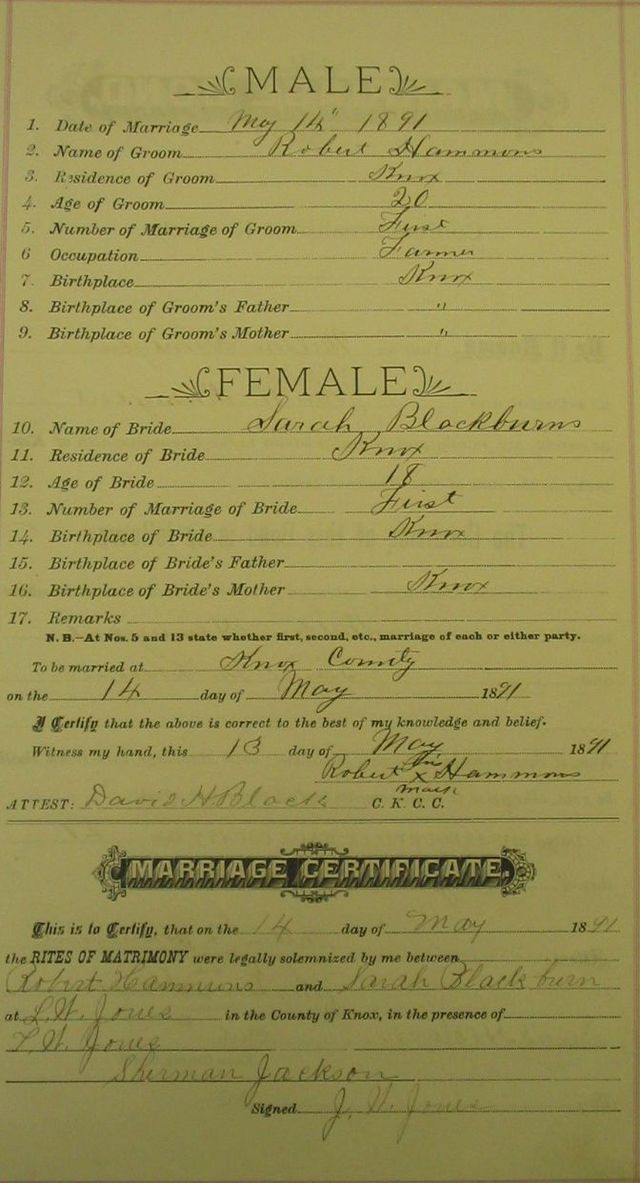 MALE
1. Date of Marriage May 14" 1891
2. Name of Groom Robert Hammons
3. Residence of Groom Knox
4. Age of Groom 20
5. Number of Marriage of Groom First
6 Occupation Farmer
7. Birthplace Knox
8. Birthplace of Groom's Father "
9. Birthplace of Groom's Mother "
FEMALE
10. Name of Bride Sarah Blackburns
11. Residence of Bride Knox
12. Age of Bride 18
13. Number of Marriage of Bride First
14. Birthplace of Bride Knox
15. Birthplace of Bride's Father
16. Birthplace of Bride's Mother Knox
17. Remarks
N. B.—At Nos. 5 and 13 state whether first, second, etc., marriage of each or either party.
To be married at Knox County
on the 14 day of May 1891
I Certify that the above is correct to the best of my knowledge and belief.
Witness my hand, this 13 day of May 1891
his
Robert x Hammons
mark
ATTEST: David H Black C. K. C. C.
MARRIAGE CERTIFICATE.
This is to Certify, that on the 14 day of May 1891
the RITES OF MATRIMONY were legally solemnized by me between
Robert Hammons and Sarah Blackburn
at L. W. Jones in the County of Knox, in the presence of
L. W. Jones
Sherman Jackson
Signed J. W. Jones